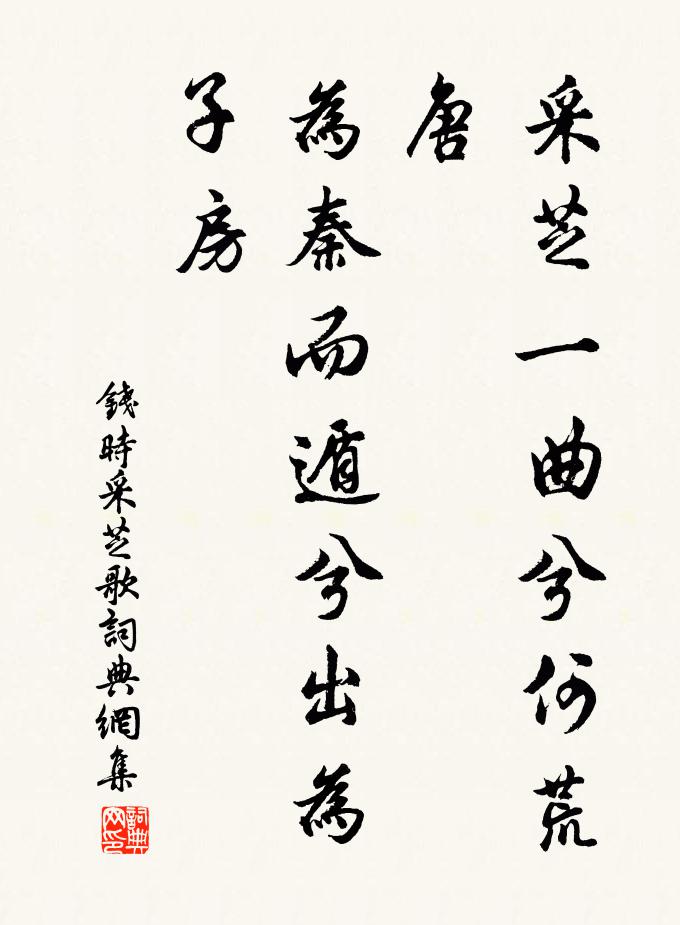 采芝一曲兮何荒
唐
為秦而遁兮出為
子房
錢時采芝歌詞典網集
詞典
网印